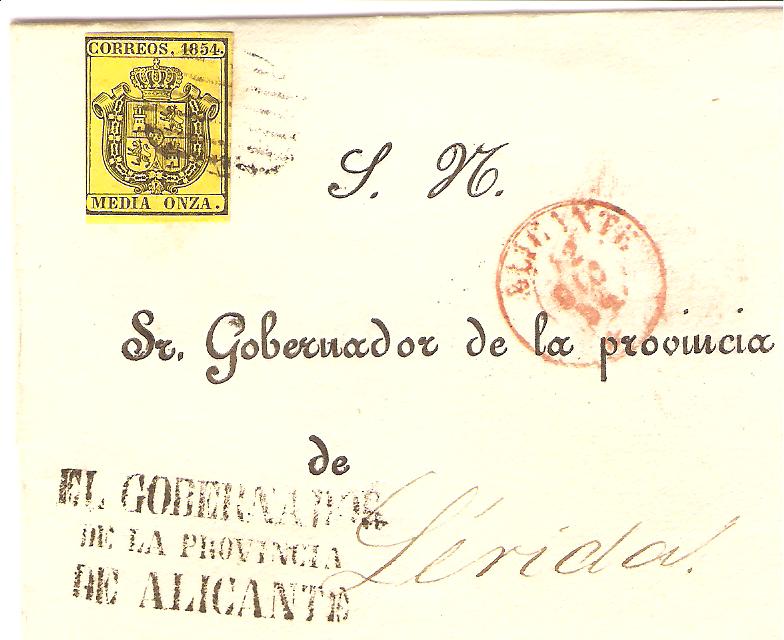 CORREOS. 1854.
MEDIA ONZA.
S. N.
ALICANTE
12
DIC
54
Sr. Gobernador de la provincia
de
Lérida.
EL GOBERNADOR
DE LA PROVINCIA
DE ALICANTE